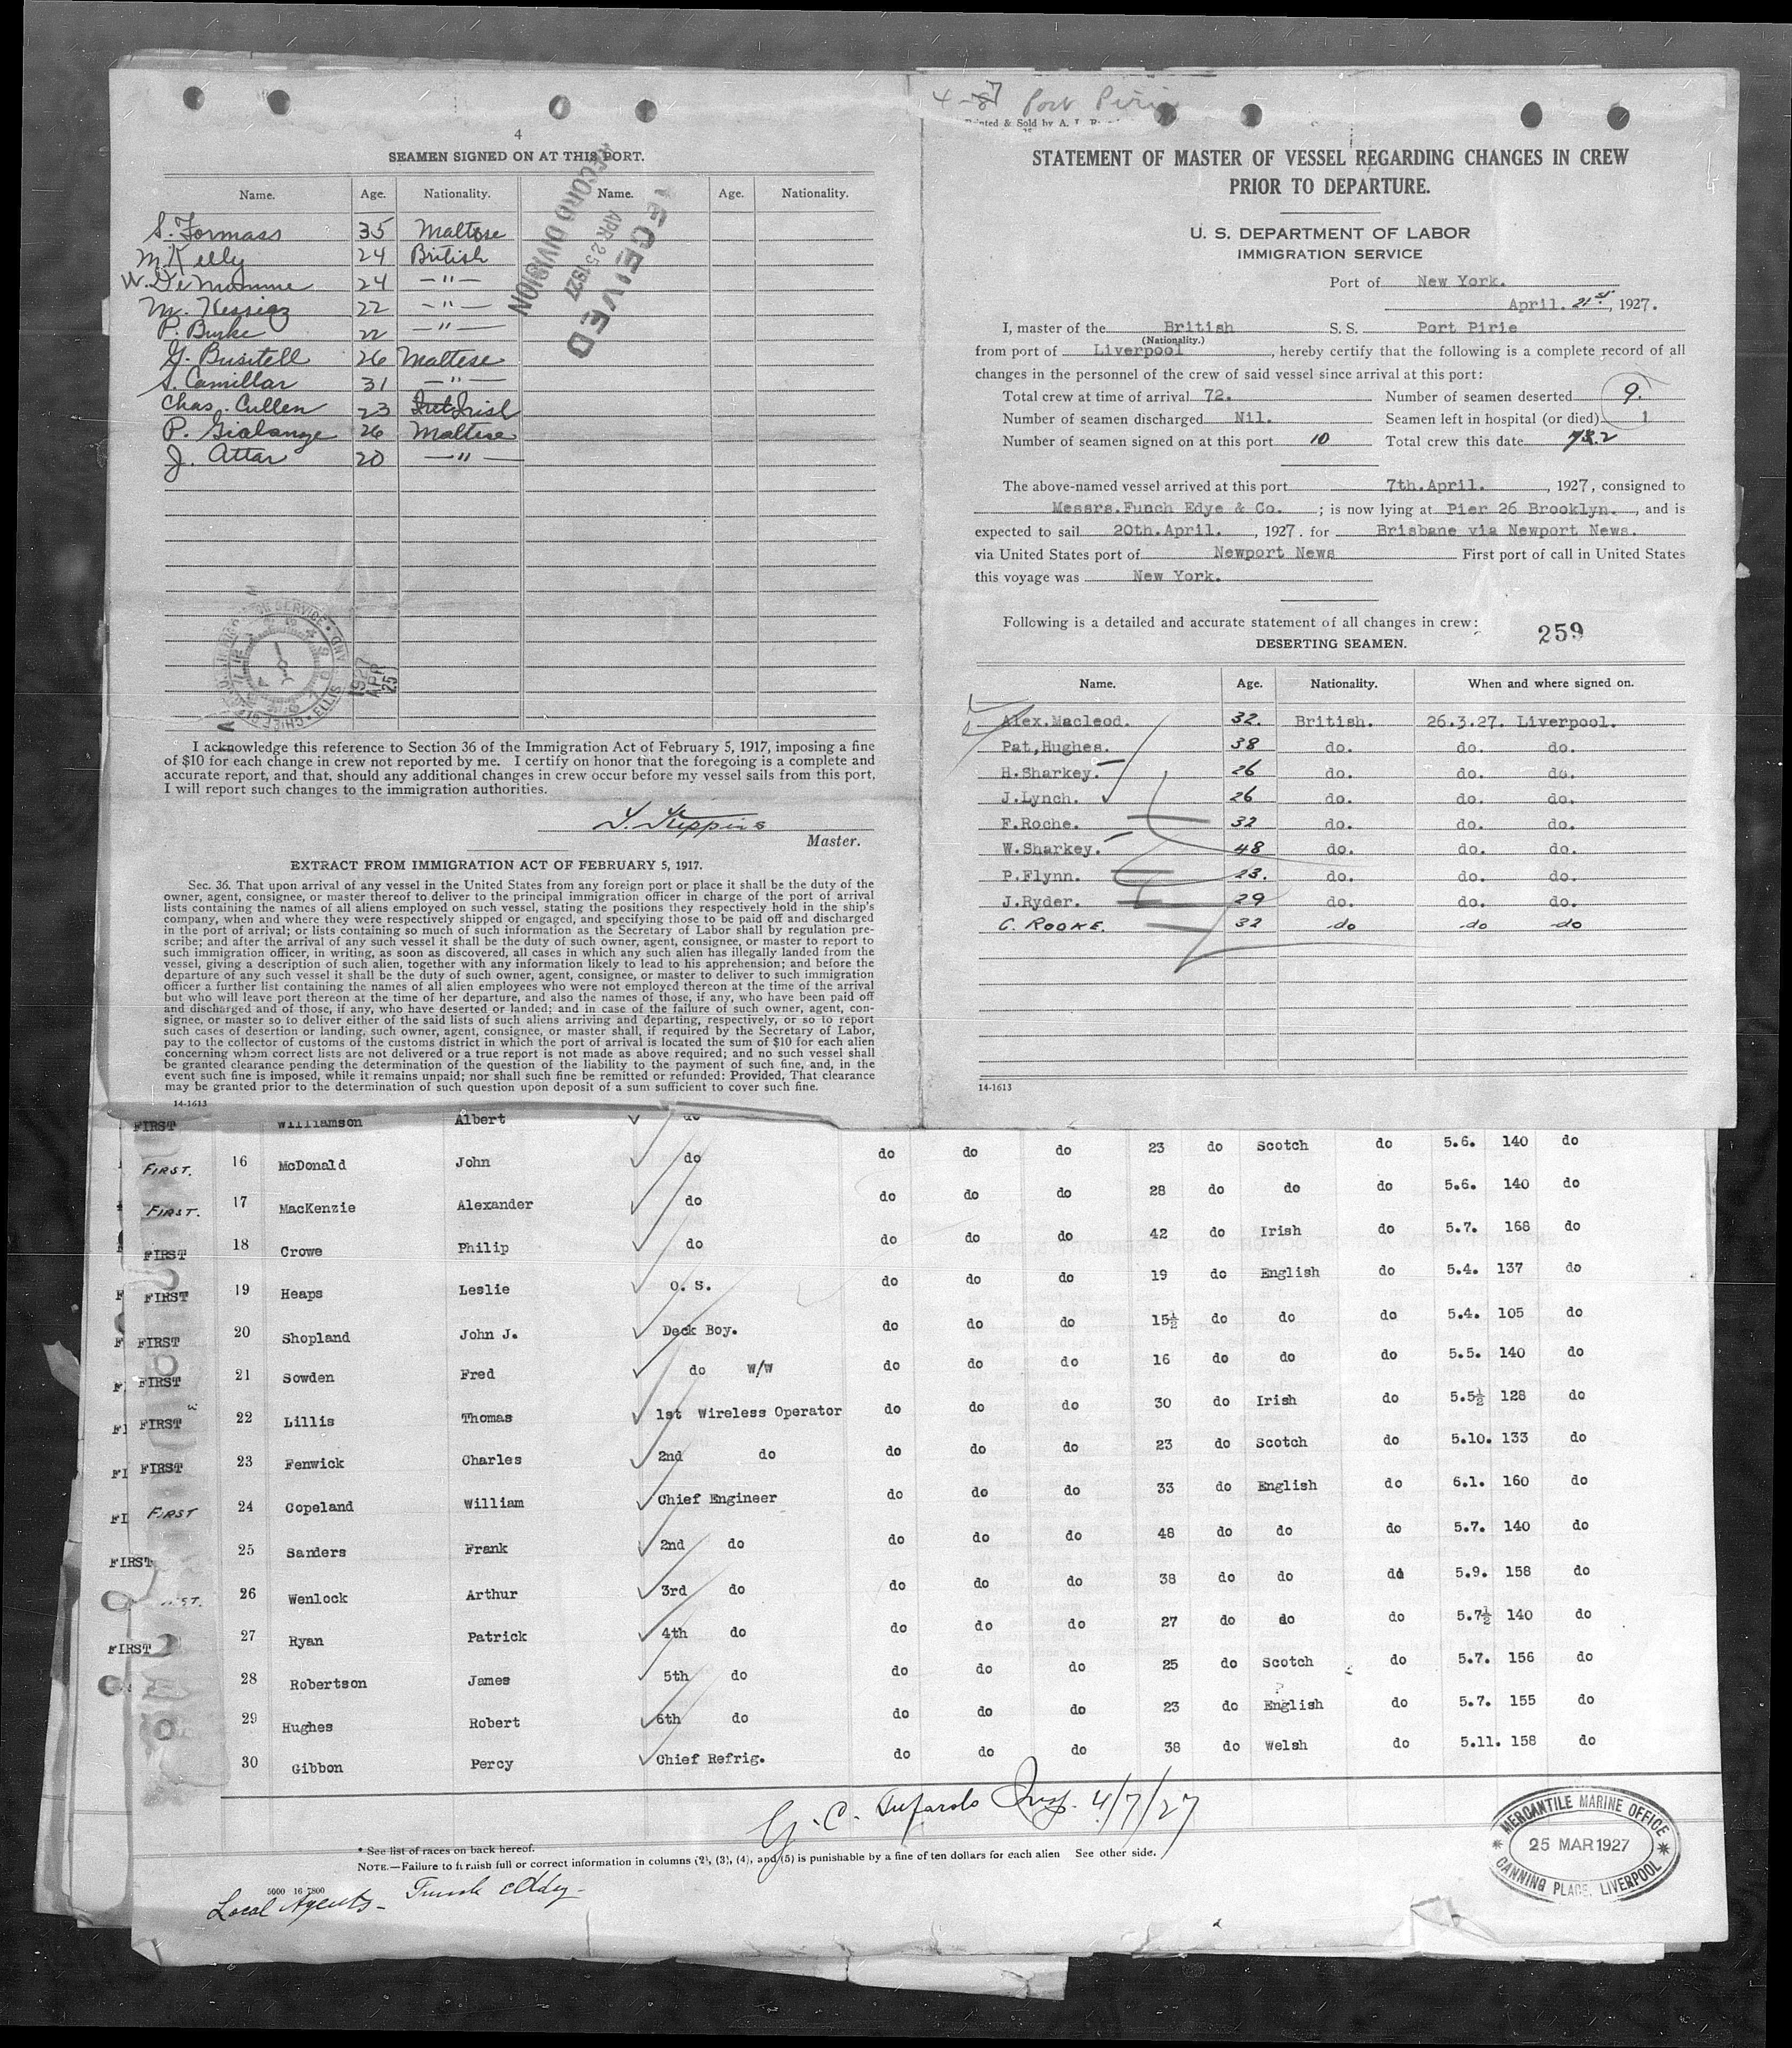 4
SEAMEN SIGNED ON AT THIS PORT.
Name. Age. Nationality. Name. Age. Nationality.
S. Formass 35 Maltese
M. Kelly 24 British
W. De 24 —"—
M. 22 —"—
P. Burke 22 —"—
G. Busitell 26 Maltese
S. Camillar 31 —"—
Chas. Cullen 23 Irish
P. Gialanze 26 Maltese
J. Attar 20 —"—
RECEIVED
APR 25 1927
RECORD DIVISION
1927
APR
25
I acknowledge this reference to Section 36 of the Immigration Act of February 5, 1917, imposing a fine
of $10 for each change in crew not reported by me. I certify on honor that the foregoing is a complete and
accurate report, and that, should any additional changes in crew occur before my vessel sails from this port,
I will report such changes to the immigration authorities.
Master.
EXTRACT FROM IMMIGRATION ACT OF FEBRUARY 5, 1917.
Sec. 36. That upon arrival of any vessel in the United States from any foreign port or place it shall be the duty of the
owner, agent, consignee, or master thereof to deliver to the principal immigration officer in charge of the port of arrival
lists containing the names of all aliens employed on such vessel, stating the positions they respectively hold in the ship's
company, when and where they were respectively shipped or engaged, and specifying those to be paid off and discharged
in the port of arrival; or lists containing so much of such information as the Secretary of Labor shall by regulation pre-
scribe; and after the arrival of any such vessel it shall be the duty of such owner, agent, consignee, or master to report to
such immigration officer, in writing, as soon as discovered, all cases in which any such alien has illegally landed from the
vessel, giving a description of such alien, together with any information likely to lead to his apprehension; and before the
departure of any such vessel it shall be the duty of such owner, agent, consignee, or master to deliver to such immigration
officer a further list containing the names of all alien employees who were not employed thereon at the time of the arrival
but who will leave port thereon at the time of her departure, and also the names of those, if any, who have been paid off
and discharged and of those, if any, who have deserted or landed; and in case of the failure of such owner, agent, con-
signee, or master so to deliver either of the said lists of such aliens arriving and departing, respectively, or so to report
such cases of desertion or landing, such owner, agent, consignee, or master shall, if required by the Secretary of Labor,
pay to the collector of customs of the customs district in which the port of arrival is located the sum of $10 for each alien
concerning whom correct lists are not delivered or a true report is not made as above required; and no such vessel shall
be granted clearance pending the determination of the question of the liability to the payment of such fine, and, in the
event such fine is imposed, while it remains unpaid; nor shall such fine be remitted or refunded: Provided, That clearance
may be granted prior to the determination of such question upon deposit of a sum sufficient to cover such fine.
14-1613
Port Pirie
& Sold by A. L.
STATEMENT OF MASTER OF VESSEL REGARDING CHANGES IN CREW
PRIOR TO DEPARTURE.
U. S. DEPARTMENT OF LABOR
IMMIGRATION SERVICE
Port of New York.
April. 21st, 1927.
I, master of the British S. S. Port Pirie
(Nationality.)
from port of Liverpool, hereby certify that the following is a complete record of all
changes in the personnel of the crew of said vessel since arrival at this port:
Total crew at time of arrival 72. Number of seamen deserted 9.
Number of seamen discharged Nil. Seamen left in hospital (or died) 1
Number of seamen signed on at this port 10 Total crew this date 72
The above-named vessel arrived at this port 7th.April., 1927, consigned to
Messrs.Funch Edye & Co.; is now lying at Pier 26 Brooklyn., and is
expected to sail 20th.April., 1927. for Brisbane via Newport News.
via United States port of Newport News First port of call in United States
this voyage was New York.
Following is a detailed and accurate statement of all changes in crew:
259
DESERTING SEAMEN.
Name. Age. Nationality. When and where signed on.
Alex.Macleod. 32. British. 26.3.27. Liverpool.
Pat,Hughes. 38 do. do. do.
H.Sharkey. 26 do. do. do.
J.Lynch. 26 do. do. do.
F.Roche. 32 do. do. do.
W.Sharkey. 48 do. do. do.
P.Flynn. 23. do. do. do.
J.Ryder. 29 do. do. do.
C. ROOKE. 32 do do do
14-1613
FIRST Williamson Albert do
FIRST. 16 McDonald John do do do do 23 do Scotch do 5.6. 140 do
FIRST. 17 MacKenzie Alexander do do do do 28 do do do 5.6. 140 do
FIRST 18 Crowe Philip do do do do 42 do Irish do 5.7. 168 do
FIRST 19 Heaps Leslie O. S. do do do 19 do English do 5.4. 137 do
FIRST 20 Shopland John J. Deck Boy. do do do 15½ do do do 5.4. 105 do
FIRST 21 Sowden Fred do W/W do do do 16 do do do 5.5. 140 do
FIRST 22 Lillis Thomas 1st Wireless Operator do do do 30 do Irish do 5.5½ 128 do
FIRST 23 Fenwick Charles 2nd do do do do 23 do Scotch do 5.10. 133 do
FIRST 24 Copeland William Chief Engineer do do do 33 do English do 6.1. 160 do
FIRST 25 Sanders Frank 2nd do do do do 48 do do do 5.7. 140 do
26 Wenlock Arthur 3rd do do do do 38 do do do 5.9. 158 do
FIRST 27 Ryan Patrick 4th do do do do 27 do do do 5.7½ 140 do
28 Robertson James 5th do do do do 25 do Scotch do 5.7. 156 do
29 Hughes Robert 6th do do do do 23 do English do 5.7. 155 do
30 Gibbon Percy Chief Refrig. do do do 38 do Welsh do 5.11. 158 do
G. C. Insp. 4/7/27
* See list of races on back hereof.
NOTE.—Failure to furnish full or correct information in columns (2), (3), (4), and (5) is punishable by a fine of ten dollars for each alien See other side.
5000 16 7800
Local Agents-
MERCANTILE MARINE OFFICE
25 MAR 1927
CANNING PLACE, LIVERPOOL